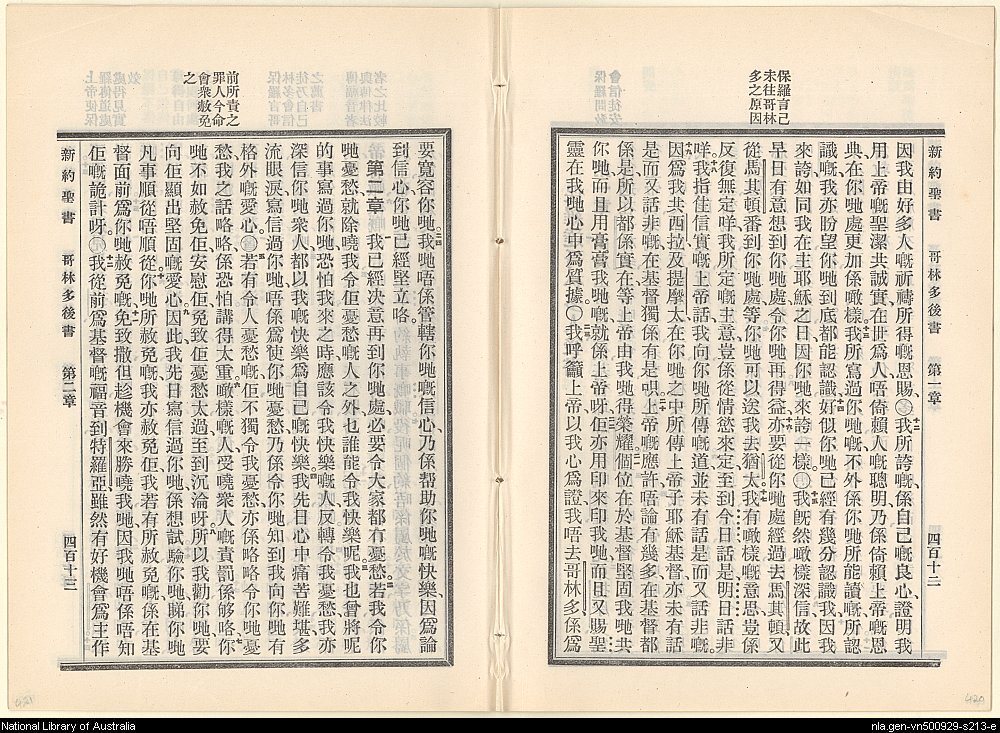 新約聖書 哥林多後書 第一章 四百十二
保羅言己
未往哥林
多之原因
因我由好多人嘅祈禱所得嘅恩賜、我所誇嘅係自己嘅良心、證明我
用上帝嘅聖潔共誠實在世爲人唔倚賴人嘅聰明乃係倚賴上帝嘅恩
典、在你哋處更加係噉樣我所寫過你哋嘅不外係你哋所能讀嘅所認
識嘅我亦盼望你哋到底都能認識好似你哋已經有幾分認識我因我
來誇如同我在主耶穌之日因你哋來誇一樣我既然噉樣深信故此
早日有意想到你哋處令你哋再得益亦要從你哋處經過去馬其頓又
從馬其頓番到你哋處令等你哋可以送我去猶太我有噉樣嘅意思豈係
反復無定咩我所定嘅主意豈係從情慾來定至到今日話是明日話非
咩我指住信實嘅上帝話我向你哋所傳嘅道並未有話是而又話非嘅
因爲我共西拉及提摩太在你哋之中所傳上帝子耶穌基督亦未有話
是而又話非嘅在基督獨係有是唄上帝嘅應許唔論有幾多在基督都
係是所以都係實在等上帝由我哋得榮耀個位在於基督堅固我哋共
你哋而且用膏膏我哋嘅就係上帝呀佢亦用印來印我哋而且又賜聖
靈在我哋心中爲質據我呼籲上帝以我心爲證我唔去哥林多係爲
要寬容你哋我哋唔係管轄你哋嘅信心、乃係帮助你哋嘅快樂、因爲論
到信心你哋已經堅立咯
第二章 我已經決意再到你哋處、必要令大家都冇憂愁若我令你
哋憂愁就除曉我令佢憂愁嘅人之外也誰能令我快樂呢我也曾將呢
的事寫過你哋恐怕我來之時應該令我快樂嘅人反轉令我憂愁我亦
深信你哋衆人都以我嘅快樂爲自己嘅快樂我先日心中痛苦難堪多
流眼淚寫信過你哋唔係爲使你哋憂愁乃係令你哋知到我向你哋有
格外嘅愛心若有令人憂愁嘅佢不獨令我憂愁、亦係略略令你哋憂
愁我之話略略係恐怕講得太重噉樣嘅人受曉衆人嘅責罰係够咯你
哋不如赦免佢安慰佢免致佢憂愁太過至到沉淪呀所以我勸你哋要
向佢顯出堅固嘅愛心因此我先日寫信過你哋係想試驗你哋睇你哋
凡事順從唔順從你哋所赦免嘅我亦赦免佢我若有所赦免嘅係在基
督面前爲你哋赦免嘅免致撒但趁機會來勝曉我哋因我哋唔係唔知
佢嘅詭計呀我從前爲基督嘅福音到特羅亞雖然有好機會爲主作
前所責之
罪人今命
會衆赦免
之
新約聖書 哥林多後書 第二章 四百十三
421
420
National Library of Australia
nla.gen-vn500929-s213-e